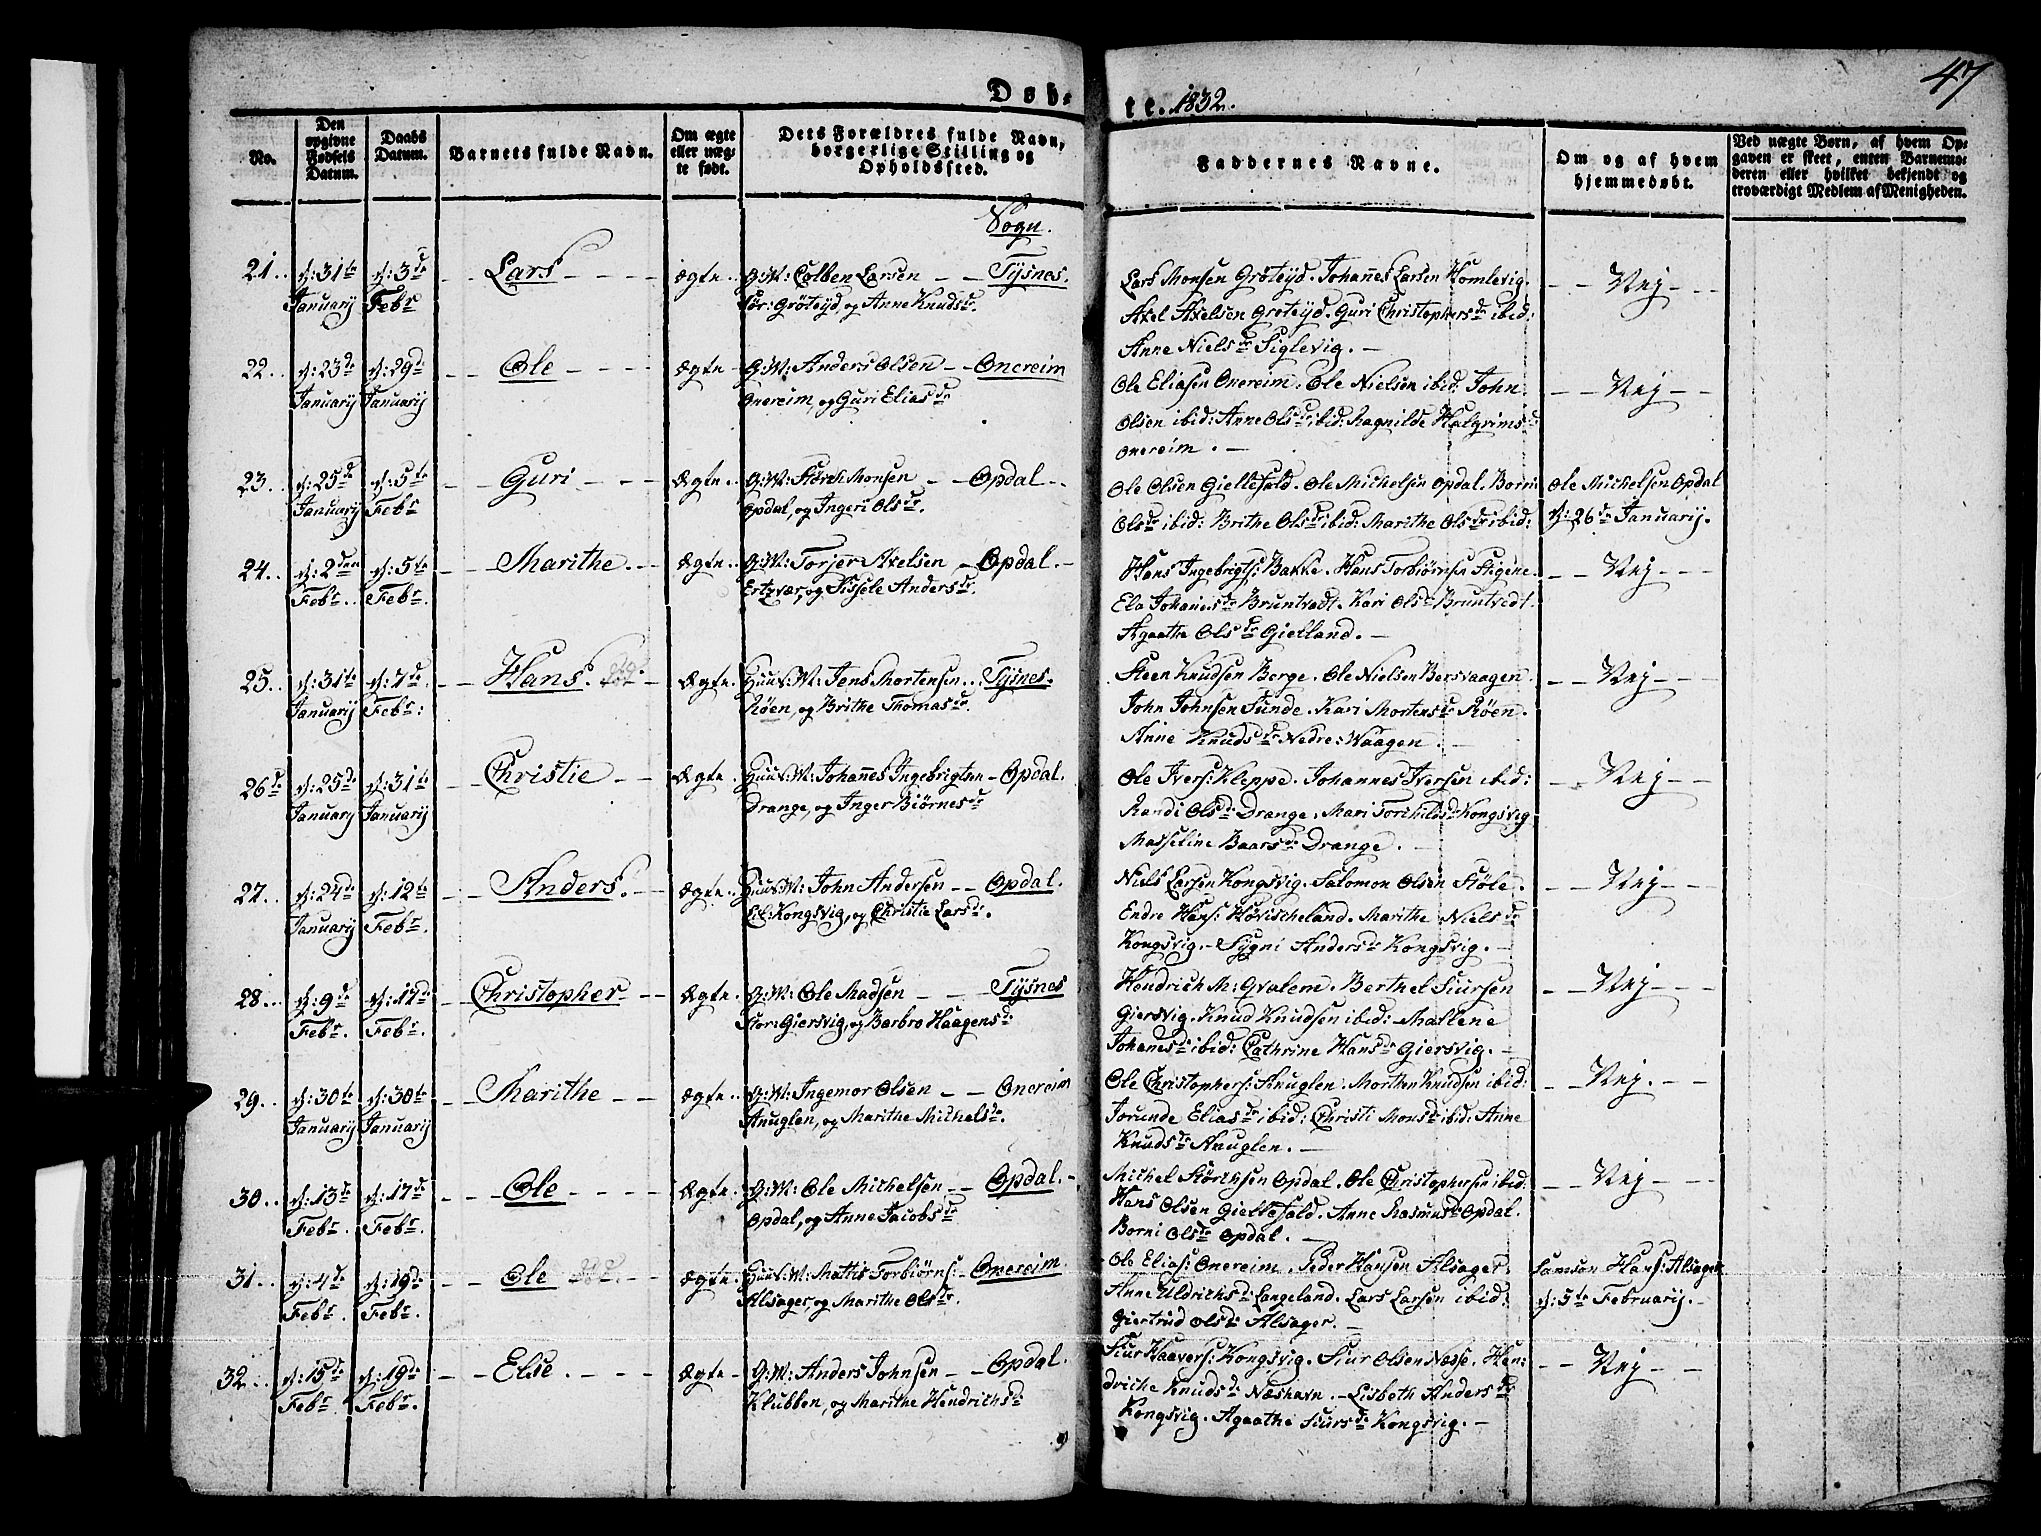 Døb-
te. 1832.
47
No.
Den opgivne Fødsels Datum.
Daabs Datum.
Barnets fulde Navn.
Om ægte eller uægte født.
Dets Forældres fulde Navn, borgerlige Stilling og Opholdssted.
Faddernes Navne.
Om og af hvem hjemmedøbt.
Ved uægte Børn, af hvem Opgaven er skeet, enten Barnemoderen eller hvilket bekjendt og troværdigt Medlem af Menigheden.
Sogn.
21. d: 31te January d: 3de Febr Lars ægte G:M: Colben Larsen Tysnes.
Gröteyd, og Anne Knudsdr.
Lars Monsen Gröteyd. Johannes Larsen Homlevig.
Axel Axelsen Gröteyd. Guri Christophersdr ibid:
Anne Nielsdr Siglevig.
Nej
22. d: 23de January d: 29de January Ole Ægte G:M: Anders Olsen Onereim
Onereim, og Guri Eliasdr
Ole Eliasen Onereim. Ole Nielsen ibid: John
Olsen ibid: Anne Olsdr ibid: Ragnilde Halgrimsdr
Onereim.
Nej
23. d: 25de January d: 5te Febr Guri Ægte G:M: Störch Monsen Opdal
Opdal, og Ingeri Olsdr.
Ole Olsen Giellefald. Ole Michelsen Opdal. Borni
Olsdr ibid: Brithe Olsdr ibid: Marithe Olsdr ibid:
Ole Michelsen Opdal
d: 26de January.
24. d: 2den Febr. d: 5te Febr. Marithe Ægte G:M: Torjer Axelsen Opdal.
Ertzvær, og Sissele Andersdr.
Hans Ingebrigts: Bakke. Hans Torbiörnsen
Ela Johanesdr Bruntvedt. Kari Olsdr Bruntvedt.
Agaathe Olsdr Gielland.
Nej
25. d: 31te January d: 7de Febr: Hans. Ægte. Huus:M: Jens Mortensen Tysnes.
Röen, og Brithe Thomasdr.
Steen Knudsen Berge. Ole Nielsen Bersvaagen
John Johnsen Sunde. Kari Mortensdr Röen.
Anne Knudsdr Nedre: Waagen.
Nej
26de d: 25de January d: 31te January Christie Ægte. Huus:M: Johannes Ingebrigtsen Opdal.
Drange, og Inger Biörnesdr
Ole Ivers: Kleppe. Johannes Iversen ibid:
Randi Olsdr Drange. Mari Torkildsdr Kongsvig
Masseline Baarsdr Drange.
Nej
27. d: 24de January d: 12te Febr. Anders. Ægte. Huus:M: John Andersen Opdal.
Kongsvig, og Christie Larsdr.
Niels Larsen Kongsvig. Salomon Olsen Stöle.
Endre Hans: Hövischeland. Marithe Nielsdr
Kongsvig. Sygni Andersdr Kongsvig.
Nej
28. d: 9de Febr. d: 17de Febr. Christopher Ægte. G:M: Ole Madsen Tysnes
Stor: Giersvig, og Barbro Haagensdr
Hendrich M: Qvalem. Berthel Siursen
Giersvig. Knud Knudsen ibid: Mallene
Johanesdr ibid: Cathrine Hansdr Giersvig.
Nej
29. d: 30te January d: 30te January Marithe Ægte G:M: Ingemor Olsen Onereim
Anuglen, og Marithe Michelsdr.
Ole Christophers: Anuglen. Morthen Knudsen ibid:
Jorunde Eliasdr ibid: Christi Monsdr ibid: Anne
Knudsdr Anuglen.
Nej
30. d: 13de Febr. d: 17de Febr. Ole Ægte. G:M: Ole Michelsen Opdal.
Opdal, og Anne Jacobsdr
Michel Störchsen Opdal. Ole Christophersen ibid:
Hans Olsen Giellefald. Anne Rasmusdr Opdal.
Borni Olsdr Opdal.
Nej
31. d: 4de Febr. d: 19de Febr. Ole Ægte. Huus:M: Mattis Torbiörns: Onereim.
Alsager, og Marithe Olsdr.
Ole Elias: Onereim. Peder Hansen Alsager.
Anne Uldrichsdr Langeland. Lars Larsen ibid:
Giertrud Olsdr Alsager.
Samson Hans: Alsager
d: 5te February.
32. d: 15de Febr. d: 19de Febr. Else. Ægte G:M: Anders Johnsen Opdal.
Klubben, og Marithe Hendrichsdr
Siur Haavers: Kongsvig. Siur Olsen Næsse. Hen:
driche Knudsdr Næshavn. Lisbeth Andersdr
Kongsvig. Agaathe Siursdr Kongsvig.
Nej